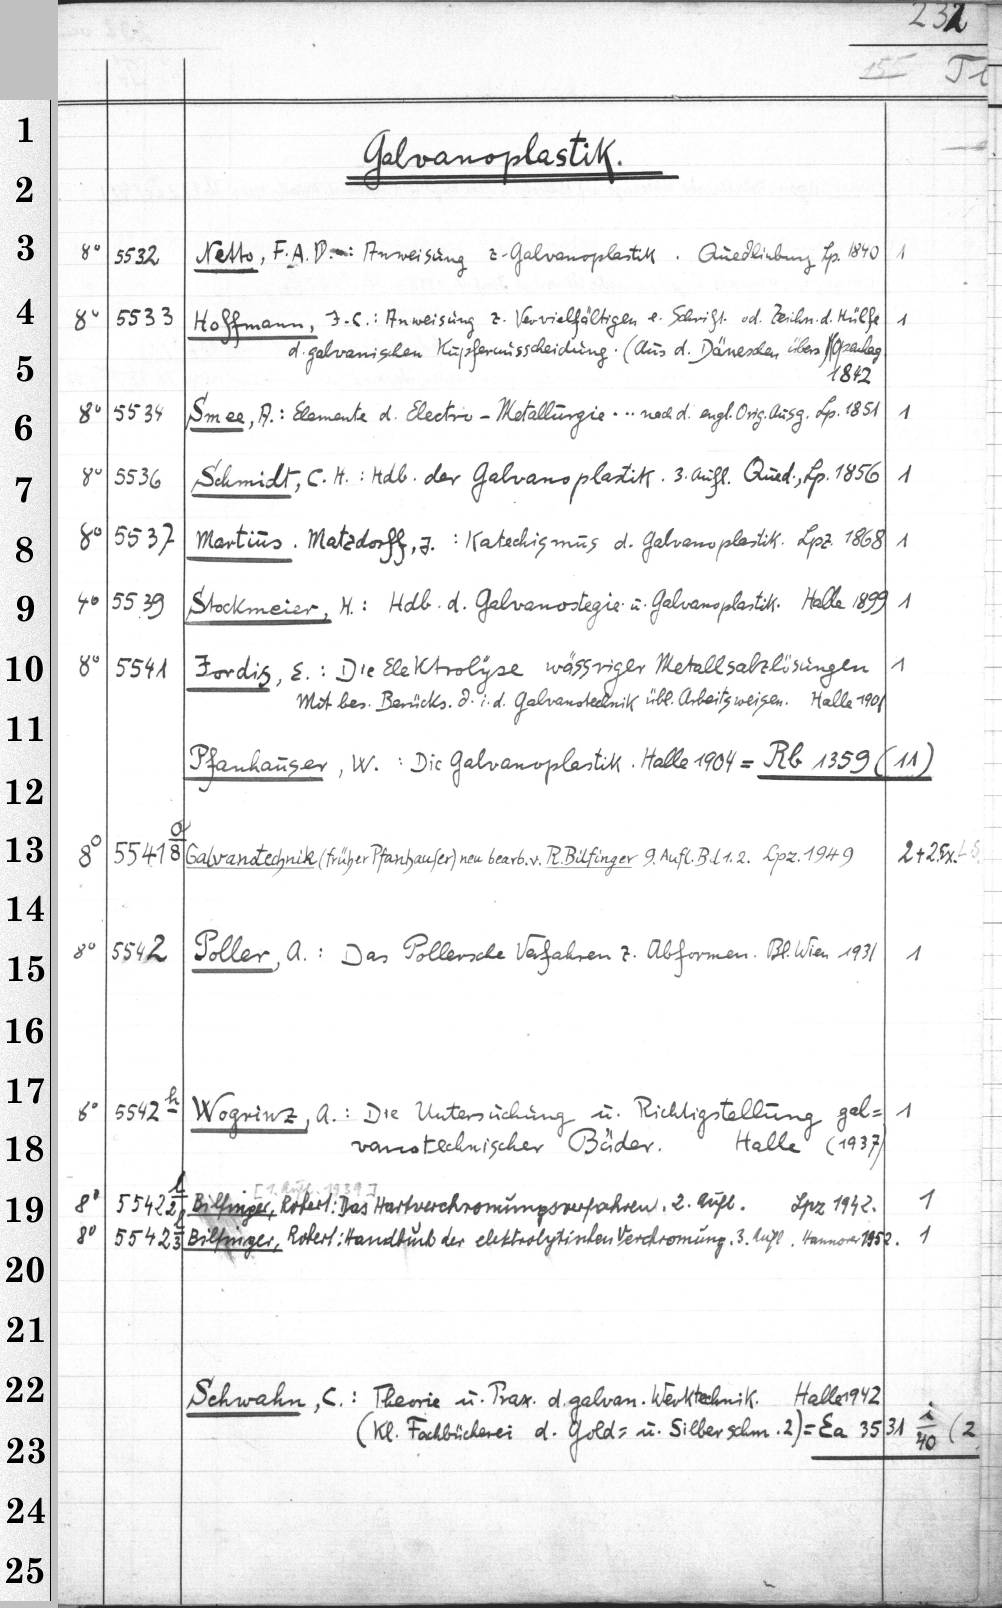 232
155 Tl
Galvanoplastik.
8° 5532 Netto, F. A. V.: Anweisung z. Galvanoplastik. Quedlinburg Lp. 1840 1
8° 5533 Hoffmann, J. C.: Anweisung z. Vervielfältigen e. Schrift od. Zeichn. d. Hülfe 1
d. galvanischen Kupferausscheidung. (Aus d. Dänischen übers.) Kopenhag
1842
8° 5534 Smee, A.: Elemente d. Electro-Metallurgie ... nach d. engl. Orig. Ausg. Lp. 1851 1
8° 5536 Schmidt, C. H.: Hdb. der Galvanoplastik. 3. Aufl. Qued., Lp. 1856 1
8° 5537 Martius. Matzdorff, J.: Katechismus d. Galvanoplastik. Lpz. 1868 1
4° 5539 Stockmeier, H.: Hdb. d. Galvanostegie u. Galvanoplastik. Halle 1899 1
8° 5541 Jordis, E.: Die Elektrolyse wässriger Metallsalzlösungen 1
Mit bes. Berücks. d. i. d. Galvanotechnik übl. Arbeitsweisen. Halle 1901
Pfanhauser, W.: Die Galvanoplastik. Halle 1904 = Rb 1359 (11)
8° 5541 a/8 Galvanotechnik (früher Pfanhauser) neu bearb. v. R. Bilfinger 9. Aufl. Bd 1. 2. Lpz. 1949 2+2.Ex. LS
8° 5542 Poller, A.: Das Pollersche Verfahren z. Abformen. Bl. Wien 1931 1
8° 5542 h Wogrinz, A.: Die Untersuchung u. Richtigstellung gal=
vanotechnischer Bäder. Halle (1937) 1
[1. Aufl. 1939]
8° 5542 l/2 Bilfinger, Robert: Das Hartverchromungsverfahren. 2. Aufl. Lpz 1942. 1
8° 5542 l/3 Bilfinger, Robert: Handbuch der elektrolytischen Verchromung. 3. Aufl. Hannover 1952. 1
Schwahn, C.: Theorie u. Prax. d. galvan. Werktechnik. Halle 1942
(Kl. Fachbücherei d. Gold= u. Silberschm. 2) = Ea 3531 i/40 (2
1
2
3
4
5
6
7
8
9
10
11
12
13
14
15
16
17
18
19
20
21
22
23
24
25